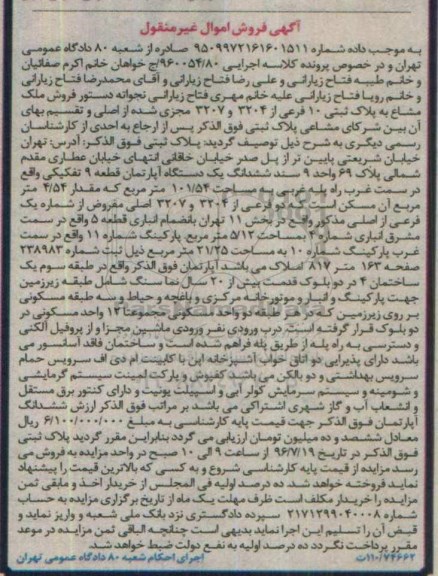 آگهی فروش اموال غیرمنقول
به موجب داده شماره ۹۵۰۹۹۷۲۱۶۱۶۰۱۵۱۱ صادره از شعبه ۸۰ دادگاه عمومی
تهران و در خصوص پرونده کلاسه اجرایی ۹۶۰۰۵۴/۸۰/ج خواهان خانم اکرم صفائیان
و خانم طیبه فتاح زیارانی و علی رضا فتاح زیارانی و آقای محمدرضا فتاح زیارانی
و خانم رویا فتاح زیارانی علیه خانم مهری فتاح زیارانی نجواته دستور فروش ملک
مشاع به پلاک ثبتی ۱۰ فرعی از ۳۲۰۴ و ۳۲۰۷ مجزی شده از اصلی و تقسیم بهای
آن بین شرکای مشاعی پلاک ثبتی فوق الذکر پس از ارجاع به احدی از کارشناسان
رسمی دیگری به شرح ذیل توصیف گردید: پلاک ثبتی فوق الذکر: آدرس: تهران
خیابان شریعتی پایین تر از پل صدر خیابان خاقانی انتهای خیابان عطاری مقدم
شمالی پلاک ۶۹ واحد ۹ سند ششدانگ یک دستگاه آپارتمان قطعه ۹ تفکیکی واقع
در سمت غرب راه پله غربی به مساحت ۱۰۱/۵۴ متر مربع که مقدار ۴/۵۴ متر
مربع آن مسکن است که دو فرعی از ۳۲۰۴ و ۳۲۰۷ اصلی مفروض از شماره یک
فرعی از اصلی مذکور واقع در بخش ۱۱ تهران بانضمام انباری قطعه ۵ واقع در سمت
مشرق انباری شماره ۴ بمساحت ۵/۱۲ متر مربع. پارکینگ شماره ۱۱ واقع در سمت
غرب پارکینگ شماره ۱۰ به مساحت ۲۱/۲۵ متر مربع ذیل ثبت شماره ۲۳۸۹۸۳
صفحه ۱۶۳ متر ۸۱۷ املاک می باشد آپارتمان فوق الذکر واقع در طبقه سوم یک
ساختمان ۴ در دو بلوک قدمت بیش از ۲۰ سال نما سنگ شامل طبقه زیرزمین
جهت پارکینگ و انبار و موتورخانه مرکزی و باغچه و حیاط و سه طبقه مسکونی
بر روی زیرزمین که در هر طبقه دو واحد مسکونی مجموعا ۱۲ واحد مسکونی در
دو بلوک قرار گرفته است. درب ورودی نفر ورودی ماشین مجزا و از پروفیل آلکنی
و دسترسی به راه پله از طریق پله فراهم شده است و ساختمان فاقد آسانسور می
باشد دارای پذیرایی دو اتاق خواب آشپزخانه اپن با کابینت ام دی اف سرویس حمام
سرویس بهداشتی و دو بالکن می باشد کفپوش و پارکت لمینت سیستم گرمایشی
و شومینه و سیستم سرمایش کولر آبی و اسپیلت یونیت و دارای کنتور برق مستقل
و انشعاب آب و گاز شهری اشتراکی می باشد بر مراتب فوق الذکر ارزش ششدانگ
آپارتمان فوق الذکر جهت قیمت پایه کارشناسی به مبلغ ۶/۱۰۰/۰۰۰/۰۰۰ ریال
معادل ششصد و ده میلیون تومان ارزیابی می گردد بنابراین مقرر گردید پلاک ثبتی
فوق الذکر در تاریخ ۹۶/۷/۱۹ از ساعت ۹ الی ۱۰ صبح در واحد مزایده به فروش می
رسد مزایده از قیمت پایه کارشناسی شروع و به کسی که بالاترین قیمت را پیشنهاد
نماید فروخته خواهد شد. ده درصد اولیه فی المجلس از خریدار اخذ و مابقی ثمن
مزایده را خریدار مکلف است ظرف مهلت یک ماه از تاریخ برگزاری مزایده به حساب
شماره ۲۱۷۱۲۹۹۰۴۰۰۰۸ سپرده دادگستری نزد بانک ملی شعبه و واریز نماید و
قبض آن را تسلیم این اجرا نماید بدیهی است چنانچه الباقی ثمن مزایده در موعد
مقرر پرداخت نگردد ده درصد اولیه به نفع دولت ضبط خواهد شد.
۱۱۰/۷۴۶۶۲ت اجرای احکام شعبه ۸۰ دادگاه عمومی تهران